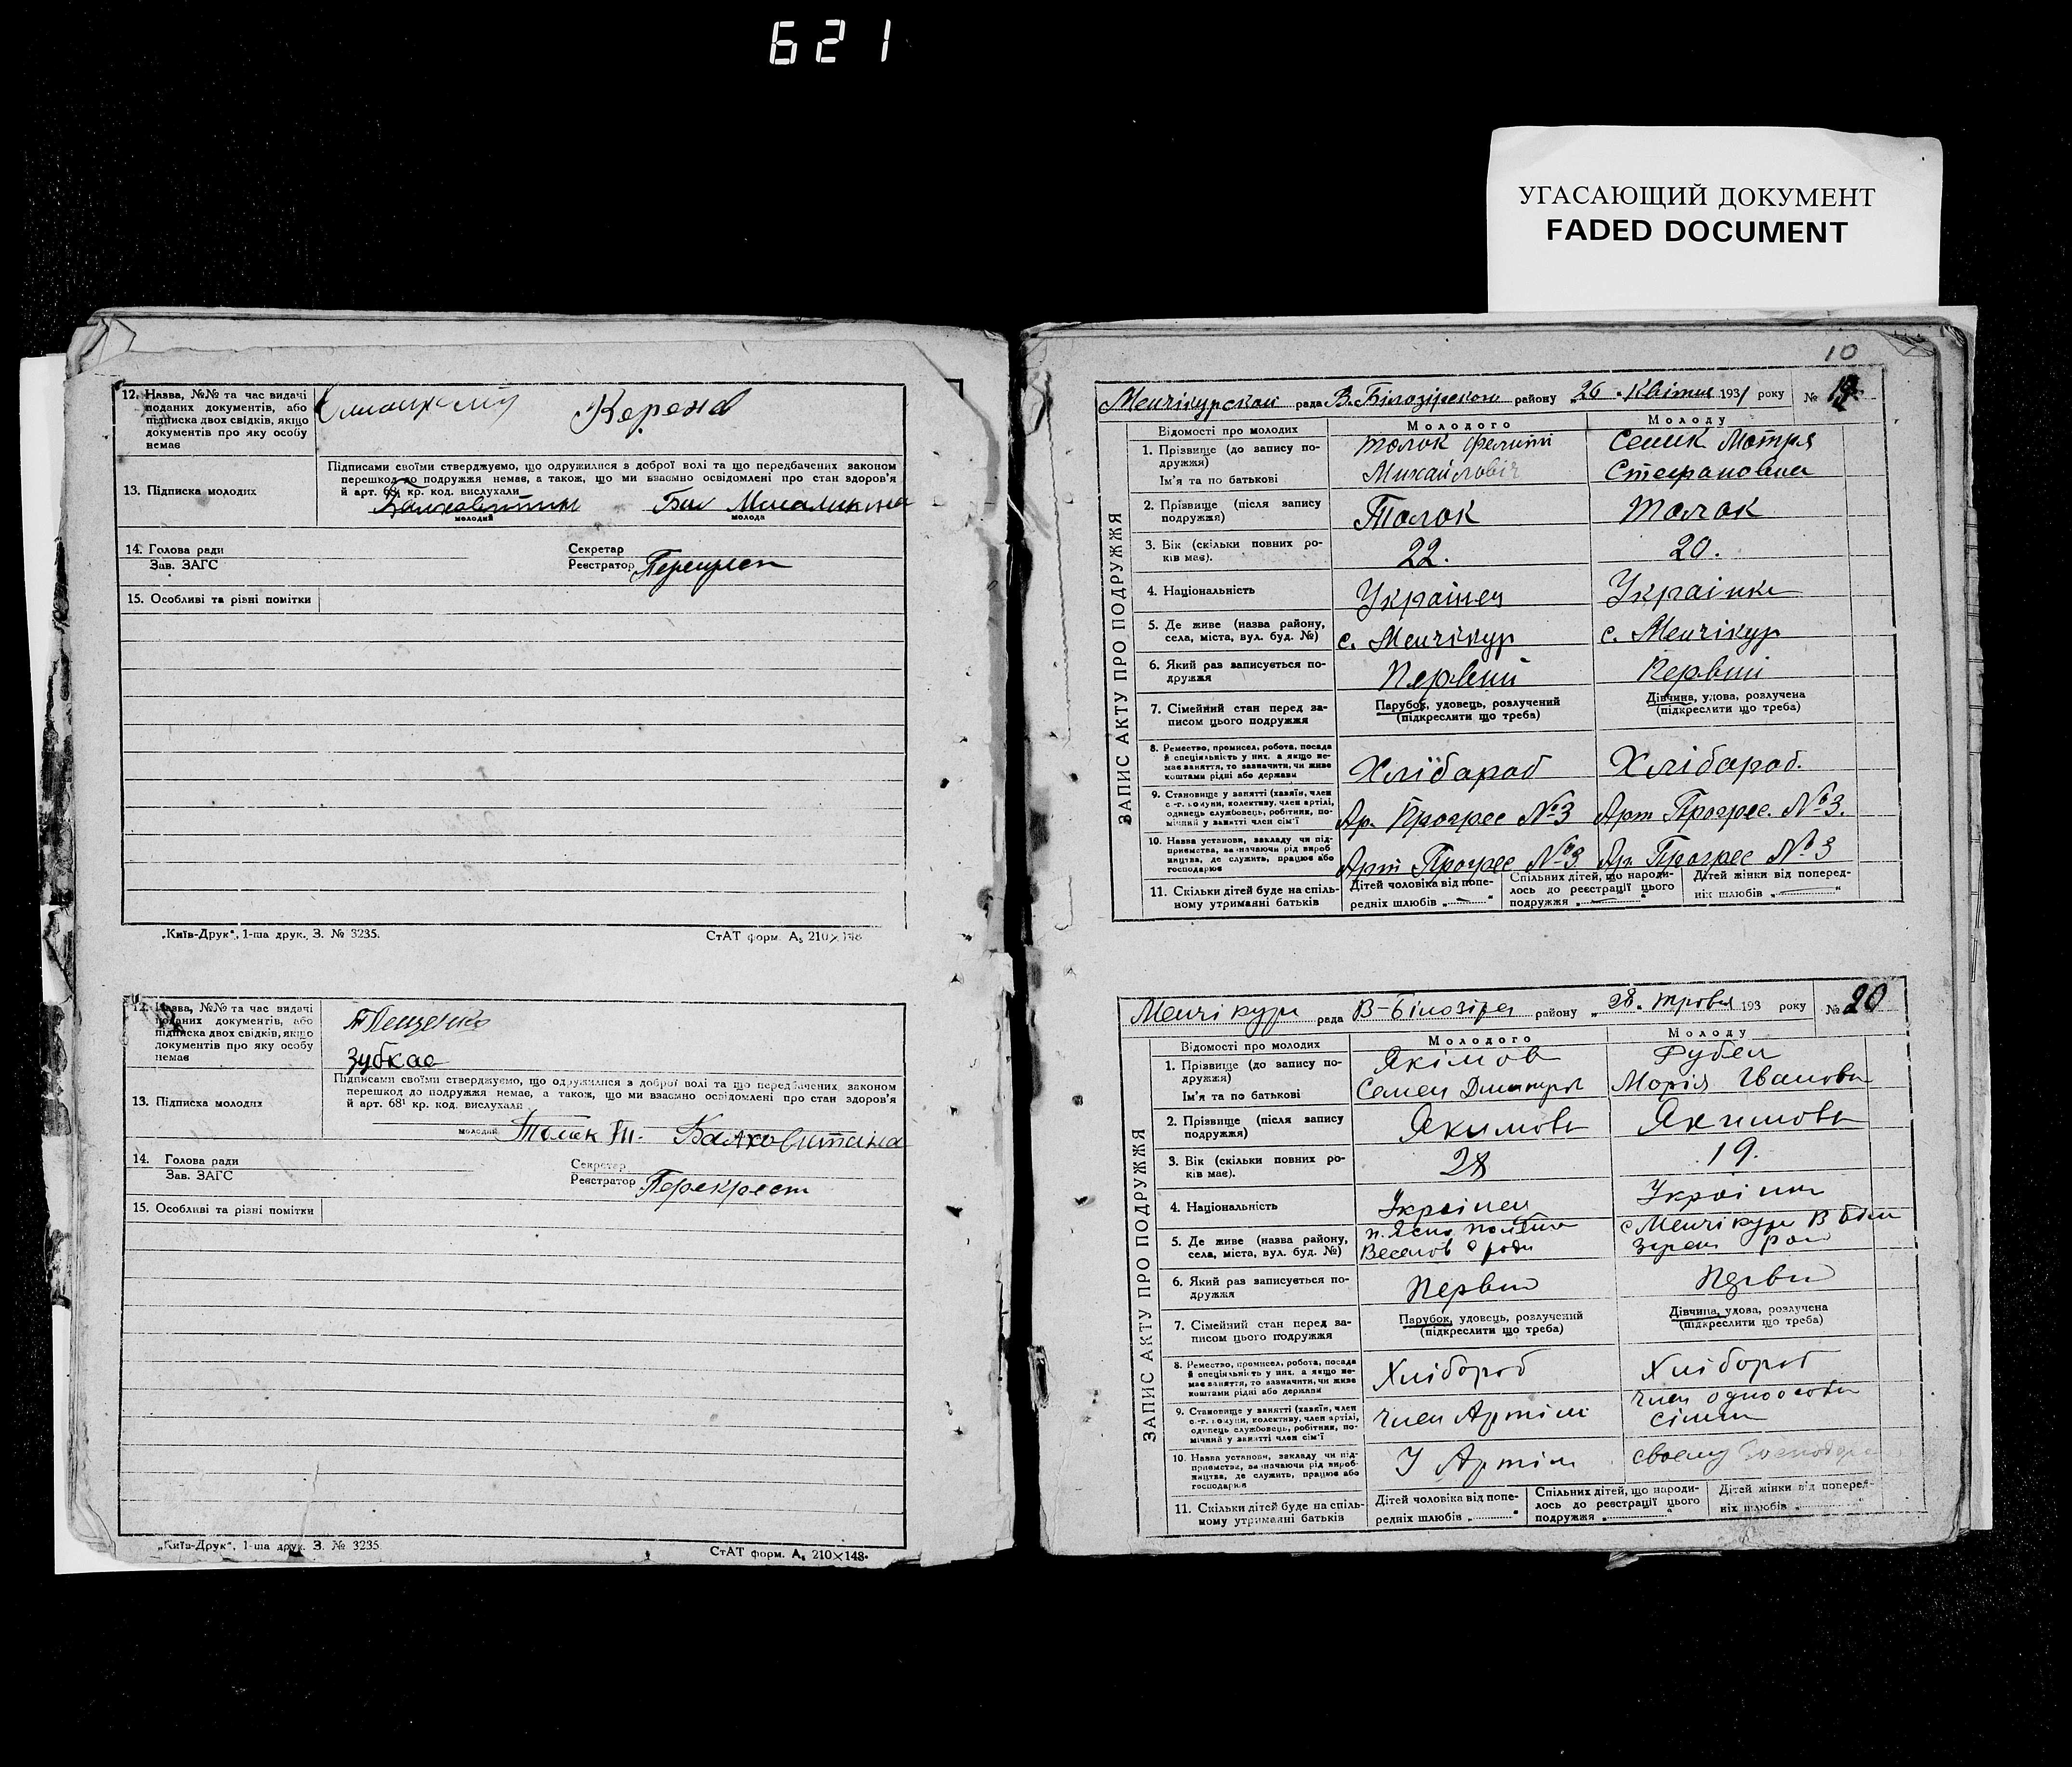 621
УГАСАЮЩИЙ ДОКУМЕНТ
FADED DOCUMENT
12. Назва, №№ та час видачі
поданих документів, або
підписка двох свідків, якщо
документів про яку особу
немає
13. Підписка молодих
Підписами своїми стверджуємо, що одружилися з доброї волі та що передбачених законом
перешкод до подружжя немає, а також, що ми взаємно освідомлені про стан здоров'я
й арт. кр. код. вислухали
молодий
молода
14. Голова ради
Зав. ЗАГС
Секретар
Реєстратор
15. Особливі та різні помітки
„Київ-Друк", 1-ша друк. З. № 3235.
СтАТ форм. А₅ 210×148
12. Назва, №№ та час видачі
поданих документів, або
підписка двох свідків, якщо
документів про яку особу
немає
Зубков
13. Підписка молодих
Підписами своїми стверджуємо, що одружилися з доброї волі та що передбачених законом
перешкод до подружжя немає, а також, що ми взаємно освідомлені про стан здоров'я
й арт. 68¹ кр. код. вислухали
молодий
14. Голова ради
Зав. ЗАГС
Секретар
Реєстратор Перекрест
15. Особливі та різні помітки
„Київ-Друк", 1-ша друк. З. № 3235
СтАТ форм. А₅ 210×148
10
ЗАПИС АКТУ ПРО ПОДРУЖЖЯ
Менчікурской рада В. Білозірского району „26 " Квітня 1931 року №
Відомості про молодих
Молодого
Молоду
1. Прізвище (до запису по-
дружжя)
Ім'я та по батькові
Толок
Михайловіч
Семик Мотря
Стефановна
2. Прізвище (після запису
подружжя)
Толок
Толок
3. Вік (скільки повних ро-
ків має).
22.
20.
4. Національність
Украінец
Украінка
5. Де живе (назва району,
села, міста, вул. буд. №)
с. Менчікур
с. Менчікур
6. Який раз записується по-
дружжя
Первий
Первий
7. Сімейний стан перед за-
писом цього подружжя
Парубок, удовець, розлучений
(підкреслити що треба)
Дівчина, удова, розлучена
(підкреслити що треба)
8. Ремество, промисел, робота, посада
й спеціяльність у них, а якщо не-
має заняття, то зазначити, чи живе
коштами рідні або держави
Хлібараб
Хлібараб.
9. Становище у занятті (хазяїн, член
с.-г. комуни, колективу, член артілі,
одинець службовець, робітник, по-
мічний у занятті член сім'ї
Ар. Прогрес №3
Арт Прогрес. №3.
10. Назва установи, закладу чи під-
приємства, зазначаючи рід вироб-
ництва, де служить, працює або
господарює
Арт Прогрес №3
Ар. Прогрес №3
11. Скільки дітей буде на спіль-
ному утриманні батьків
Дітей чоловіка від попе-
редніх шлюбів „ — "
Спільних дітей, що народи-
лось до реєстрації цього
подружжя „ — "
Дітей жінки від поперед-
ніх шлюбів „ — "
ЗАПИС АКТУ ПРО ПОДРУЖЖЯ
Менчікури рада В-Білозірсь району „28 " 193 року № 20
Відомості про молодих
Молодого
Молоду
1. Прізвище (до запису по-
дружжя)
Ім'я та по батькові
Якімов
Семен
Рубел
Морія Іванови
2. Прізвище (після запису
подружжя)
Якимови
Якимови
3. Вік (скільки повних ро-
ків має).
28
19.
4. Національність
Украінец
Украінка
5. Де живе (назва району,
села, міста, вул. буд. №)
с. Менчікури В Біло
6. Який раз записується по-
дружжя
Первий
Первий
7. Сімейний стан перед за-
писом цього подружжя
Парубок, удовець, розлучений
(підкреслити що треба)
Дівчина, удова, розлучена
(підкреслити що треба)
8. Ремество, промисел, робота, посада
й спеціяльність у них, а якщо не-
має заняття, то зазначити, чи живе
коштами рідні або держави
Хлібороб
Хлібороб
9. Становище у занятті (хазяїн, член
с.-г. комуни, колективу, член артілі,
одинець службовець, робітник, по-
мічний у занятті член сім'ї
член Артілі
член одноособн
сімьи
10. Назва установи, закладу чи під-
приємства, зазначаючи рід вироб-
ництва, де служить, працює або
господарює
У Артілі
своему
11. Скільки дітей буде на спіль-
ному утриманні батьків
Дітей чоловіка від попе-
редніх шлюбів „ "
Спільних дітей, що народи-
лось до реєстрації цього
подружжя „ "
Дітей жінки від поперед-
ніх шлюбів „ "